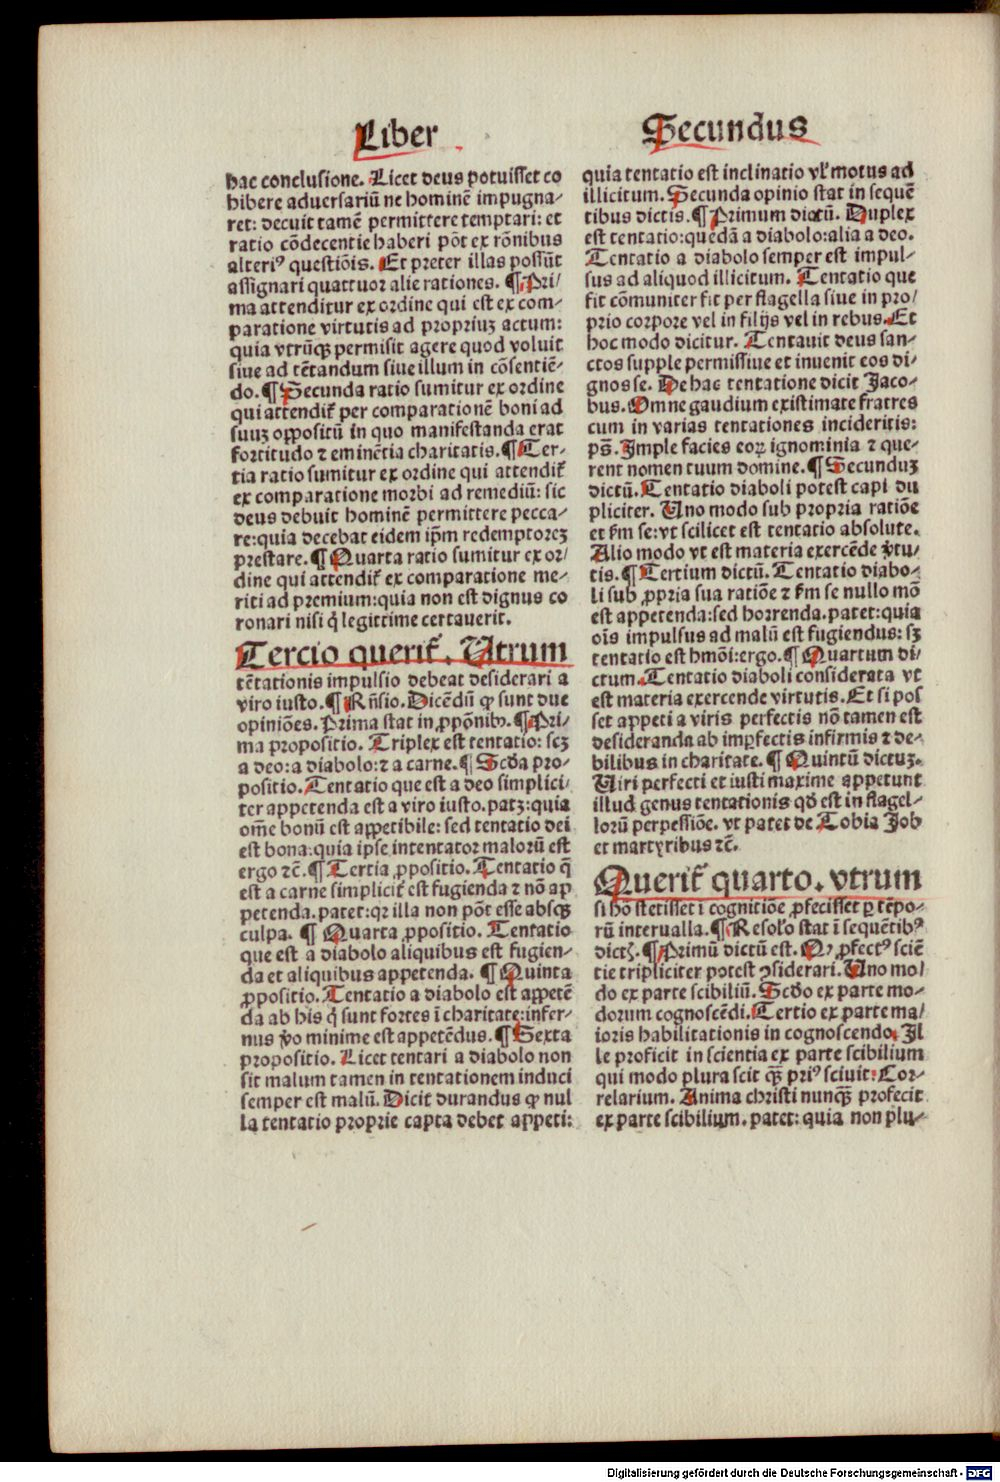 Liber
hac conclusione. Licet deus potuisset co
hibere adversariū ne hominē impugna⸗
ret: decuit tamē permittere temptari: et
ratio cōdecentie haberi pōt ex rōnibus
alteriꝰ questiōis. Et preter illas possūt
assignari quattuor alie rationes. ¶ Pri/
ma attenditur ex ordine qui est ex com⸗
paratione virtutis ad propriuꝫ actum:
quia vtrūqꝫ permisit agere quod voluit
siue ad tētandum siue illum in cōsentiē⸗
do. ¶ Secunda ratio sumitur ex ordine
qui attendit̄ per comparationē boni ad
suuꝫ oppositū in quo manifestanda erat
fortitudo ⁊ eminētia charitatis. ¶ Ter⸗
tia ratio sumitur ex ordine qui attendit̄
ex comparatione morbi ad remediū: sic
deus debuit hominē permittere pecca⸗
re: quia decebat eidem ip̄m redemptoreꝫ
prestare. ¶ Quarta ratio sumitur ex or/
dine qui attendit̄ ex comparatione me⸗
riti ad premium: quia non est dignus co
ronari nisi q̇ legittime certauerit.
Tercio querit̄. Utrum
tētationis impulsio debeat desiderari a
viro iusto. ¶ Rn̄sio. Dicēdū ꝙ sunt due
opiniōes. Prima stat in ꝓpōnibꝫ. ¶ Pri⸗
ma propositio. Triplex est tentatio: scꝫ
a deo: a diabolo: ⁊ a carne. ¶ Scd̄a pro⸗
positio. Tentatio que est a deo simplici⸗
ter appetenda est a viro iusto. patꝫ: quia
om̄e bonū est appetibile: sed tentatio dei
est bona: quia ipse intentator malorū est
ergo ⁊c̄. ¶ Tertia ꝓpositio. Tentatio q̄
est a carne simplicit̄ est fugienda ⁊ nō ap
petenda. patet: qꝛ illa non pōt esse absqꝫ
culpa. ¶ Quarta ꝓpositio. Tentatio
que est a diabolo aliquibus est fugien⸗
da et aliquibus appetenda. ¶ Quinta
ꝓpositio. Tentatio a diabolo est appetē
da ab his q̇ sunt fortes ī charitate: infer⸗
nus v̊o minime est appetēdus. ¶ Sexta
propositio. Licet tentari a diabolo non
sit malum tamen in tentationem induci
semper est malū. Dicit durandus ꝙ nul
la tentatio proprie capta debet appeti:
Secundus
quia tentatio est inclinatio vl̓ motus ad
illicitum. Secunda opinio stat in sequē
tibus dictis. ¶ Primum dictū. Duplex
est tentatio: quedā a diabolo: alia a deo.
Tentatio a diabolo semper est impul⸗
sus ad aliquod illicitum. Tentatio que
fit cōmuniter fit per flagella siue in pro/
prio corpore vel in filijs vel in rebus. Et
hoc modo dicitur. Tentauit deus san⸗
ctos supple permissiue et inuenit eos di⸗
gnos se. De hac tentatione dicit Jaco⸗
bus. Omne gaudium existimate fratres
cum in varias tentationes incideritis:
ps̄. Imple facies eoꝝ ignominia ⁊ que⸗
rent nomen tuum domine. ¶ Secunduꝫ
dictū. Tentatio diaboli potest capi du
pliciter. Uno modo sub propria ratiōe
et ẜm se: vt scilicet est tentatio absolute.
Alio modo vt est materia exercēde v̓tu⸗
tis. ¶ Tertium dictū. Tentatio diabo⸗
li sub ꝓpria sua ratiōe ⁊ ẜm se nullo mō
est appetenda: sed horrenda. patet: quia
oīs impulsus ad malū est fugiendus: sꝫ
tentatio est hmōi: ergo. ¶ Quartum di⸗
ctum. Tentatio diaboli considerata vt
est materia exercende virtutis. Et si pos
set appeti a viris perfectis nō tamen est
desideranda ab imꝑfectis infirmis ⁊ de⸗
bilibus in charitate. ¶ Quintū dictuꝫ.
Uiri perfecti et iusti maxime appetunt
illud genus tentationis qd̓ est in flagel⸗
lorū perpessiōe. vt patet de Tobia Job
et martyribus ⁊c̄.
Querit̄ quarto. vtrum
si hō stetisset ī cognitiōe ꝓfecisset ꝑ tēpo⸗
rū interualla. ¶ Resolo stat ī sequētibꝰ
dictꝭ. ¶ Primū dictū est. Qꝫ ꝓfectꝰ sciē
tie tripliciter potest ꝯsiderari. Uno mo/
do ex parte scibiliū. Scd̓o ex parte mo⸗
dorum cognoscēdi. Tertio ex parte ma/
ioris habilitationis in cognoscendo. Il
le proficit in scientia ex parte scibilium
qui modo plura scit qꝫ̄ priꝰ sciuit: Cor⸗
relarium. Anima christi nunqꝫ̄ profecit
ex parte scibilium. patet: quia non plu⸗
Digitalisierung gefördert durch die Deutsche Forschungsgemeinschaft - DFG